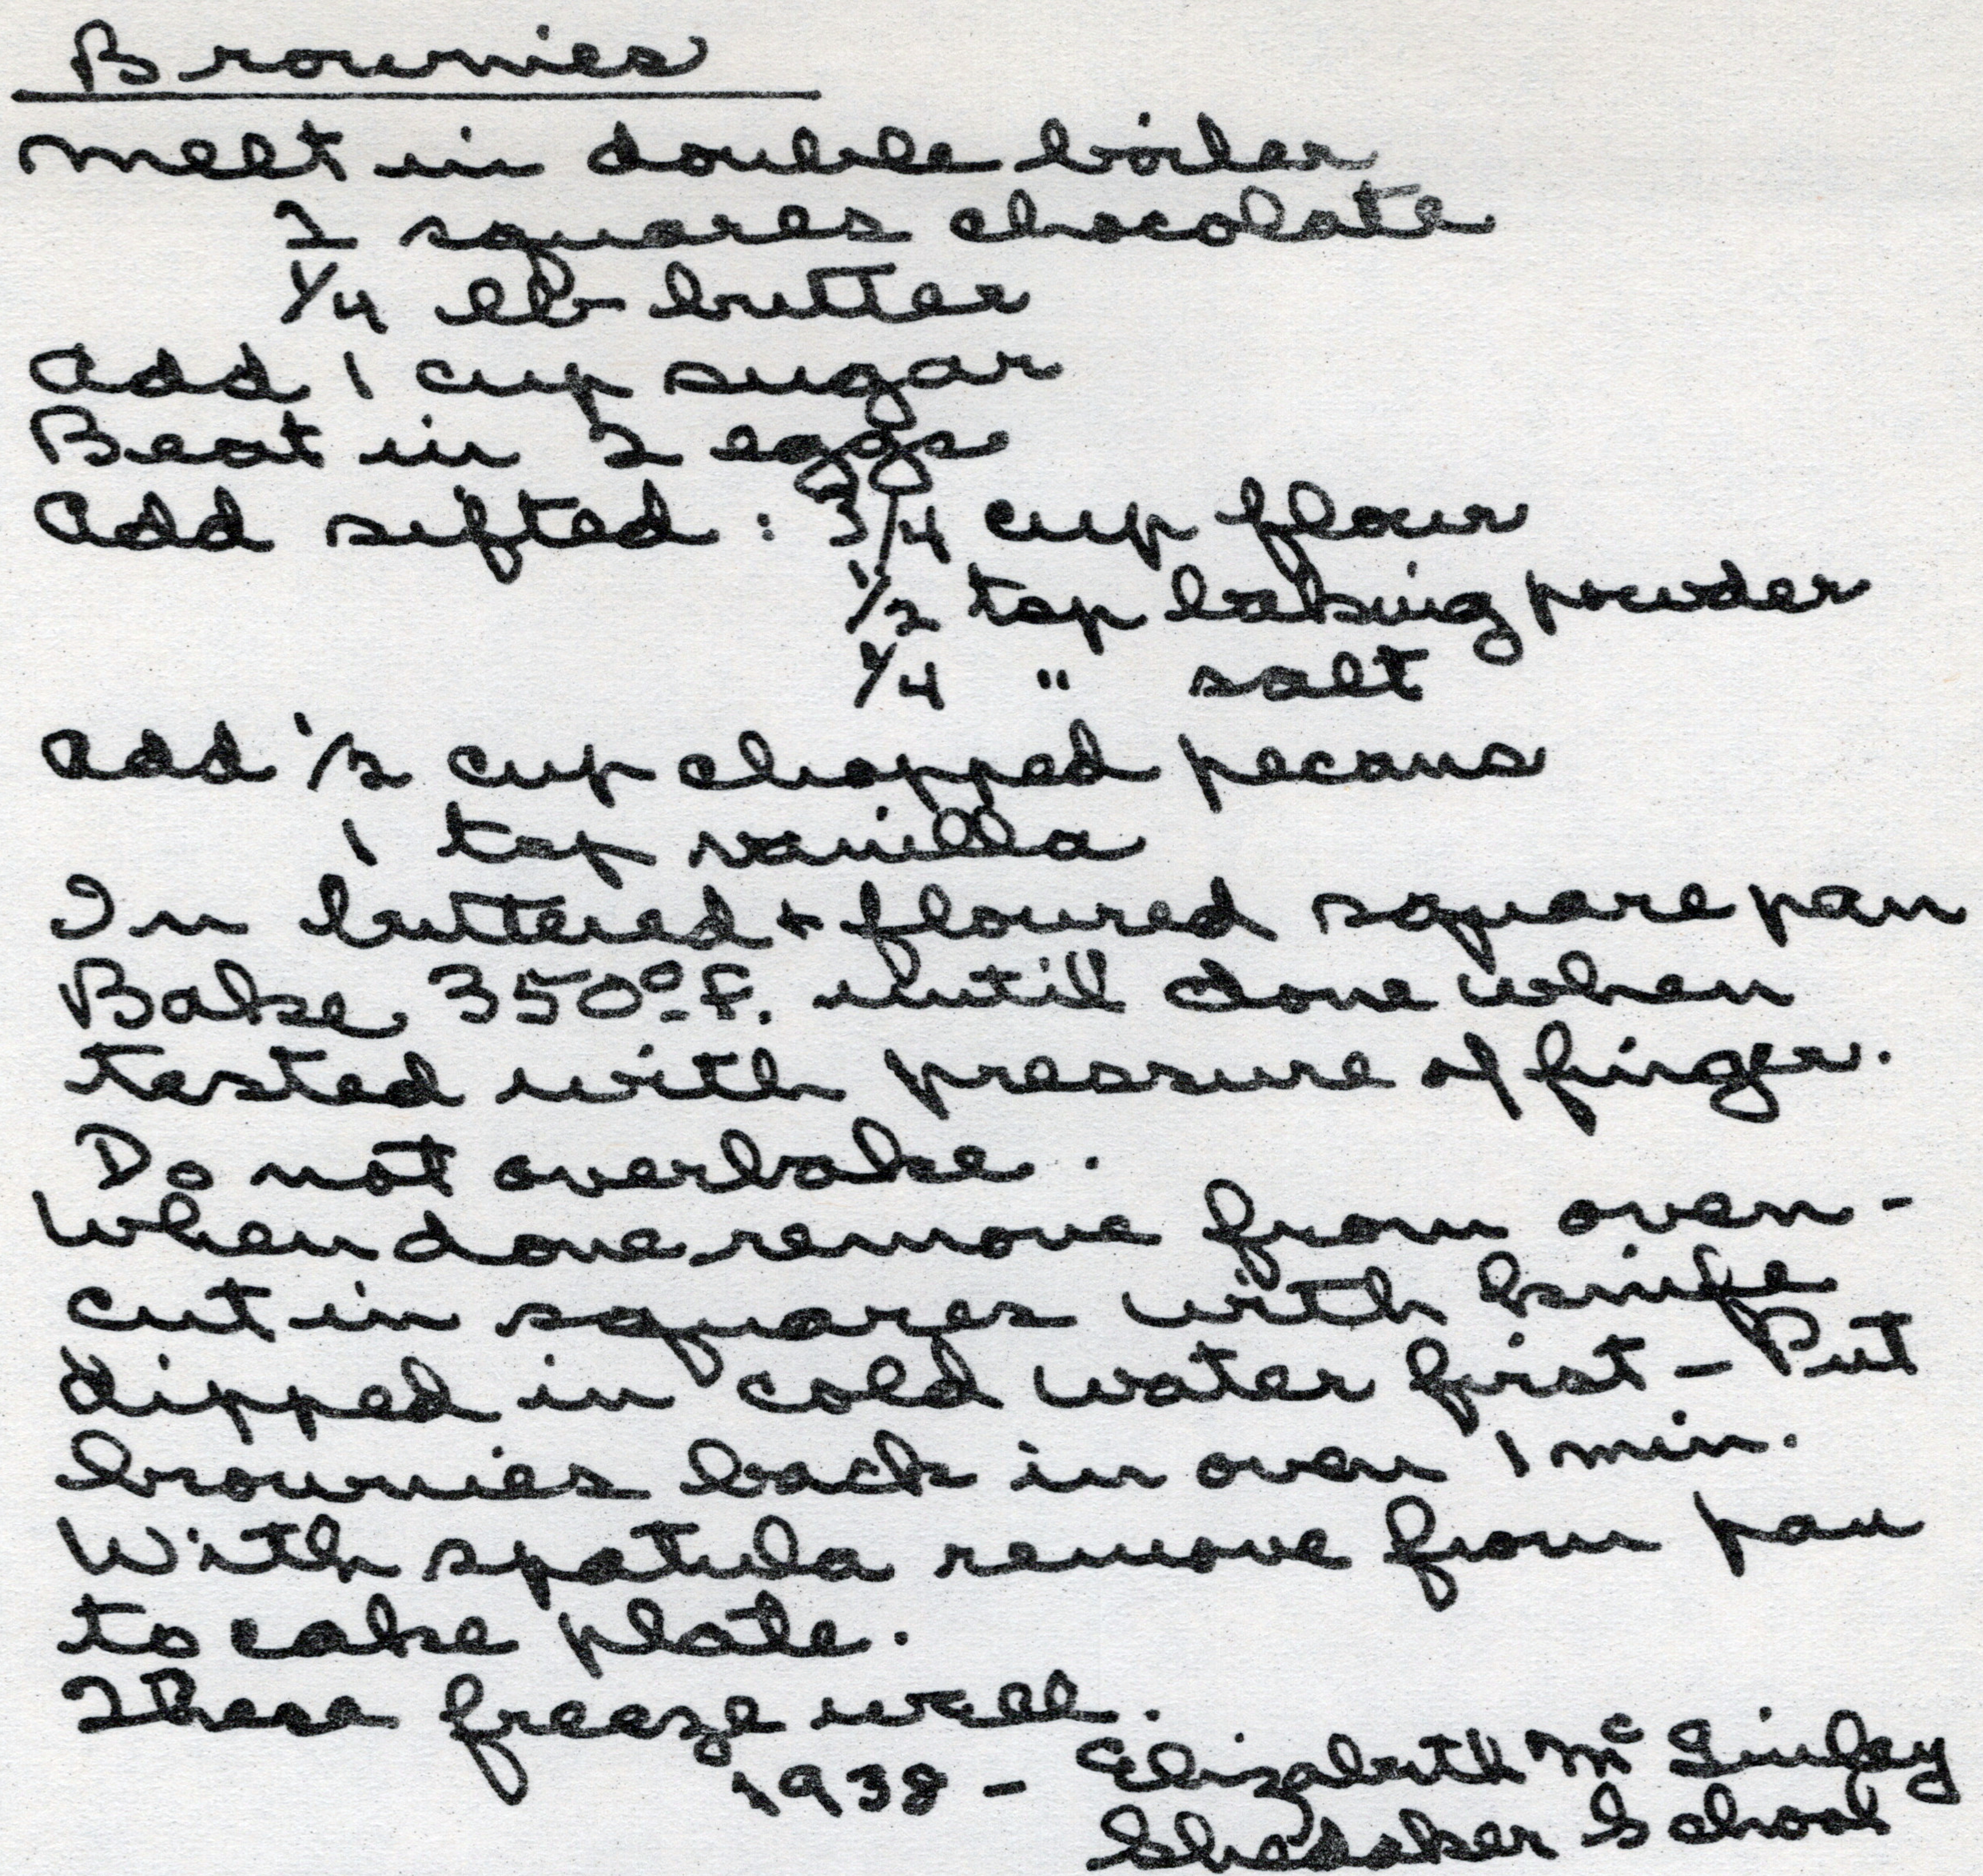 Brownies
Melt in double boiler
2 squares chocolate
1/4 lb butter
Add 1 cup sugar
Beat in 2 eggs
Add sifted : 3/4 cup flour
1/2 tsp baking powder
1/4 " salt
Add 1/2 cup chopped pecans
1 tsp vanilla
In buttered + floured square pan
Bake 350° F. until done when
tested with pressure of finger.
Do not overbake.
When done remove from oven -
cut in squares with knife
dipped in cold water first - Put
brownies back in oven 1 min.
With spatula remove from pan
to cake plate.
These freeze well.
1938 - Elizabeth Mc
School